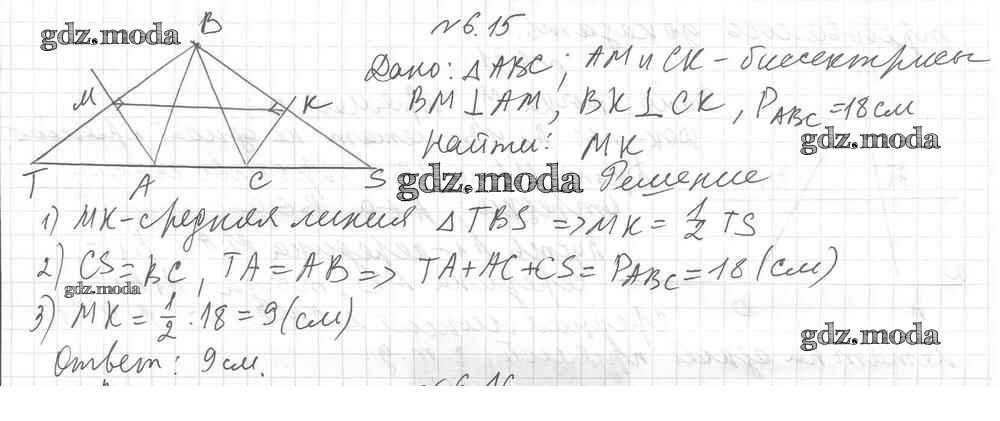 №6.15
B
gdz.moda
Дано: △ABC; AM и CK – биссектрисы
M
K
BM⊥AM, BK⊥CK, P_ABC = 18 см
gdz.moda
Найти: MK
T A C S
gdz.moda
Решение
1) MK – средняя линия △TBS => MK = 1/2 TS
2) CS = BC, TA = AB => TA + AC + CS = P_ABC = 18 (см)
gdz.moda
3) MK = 1/2 · 18 = 9 (см)
gdz.moda
Ответ: 9 см.